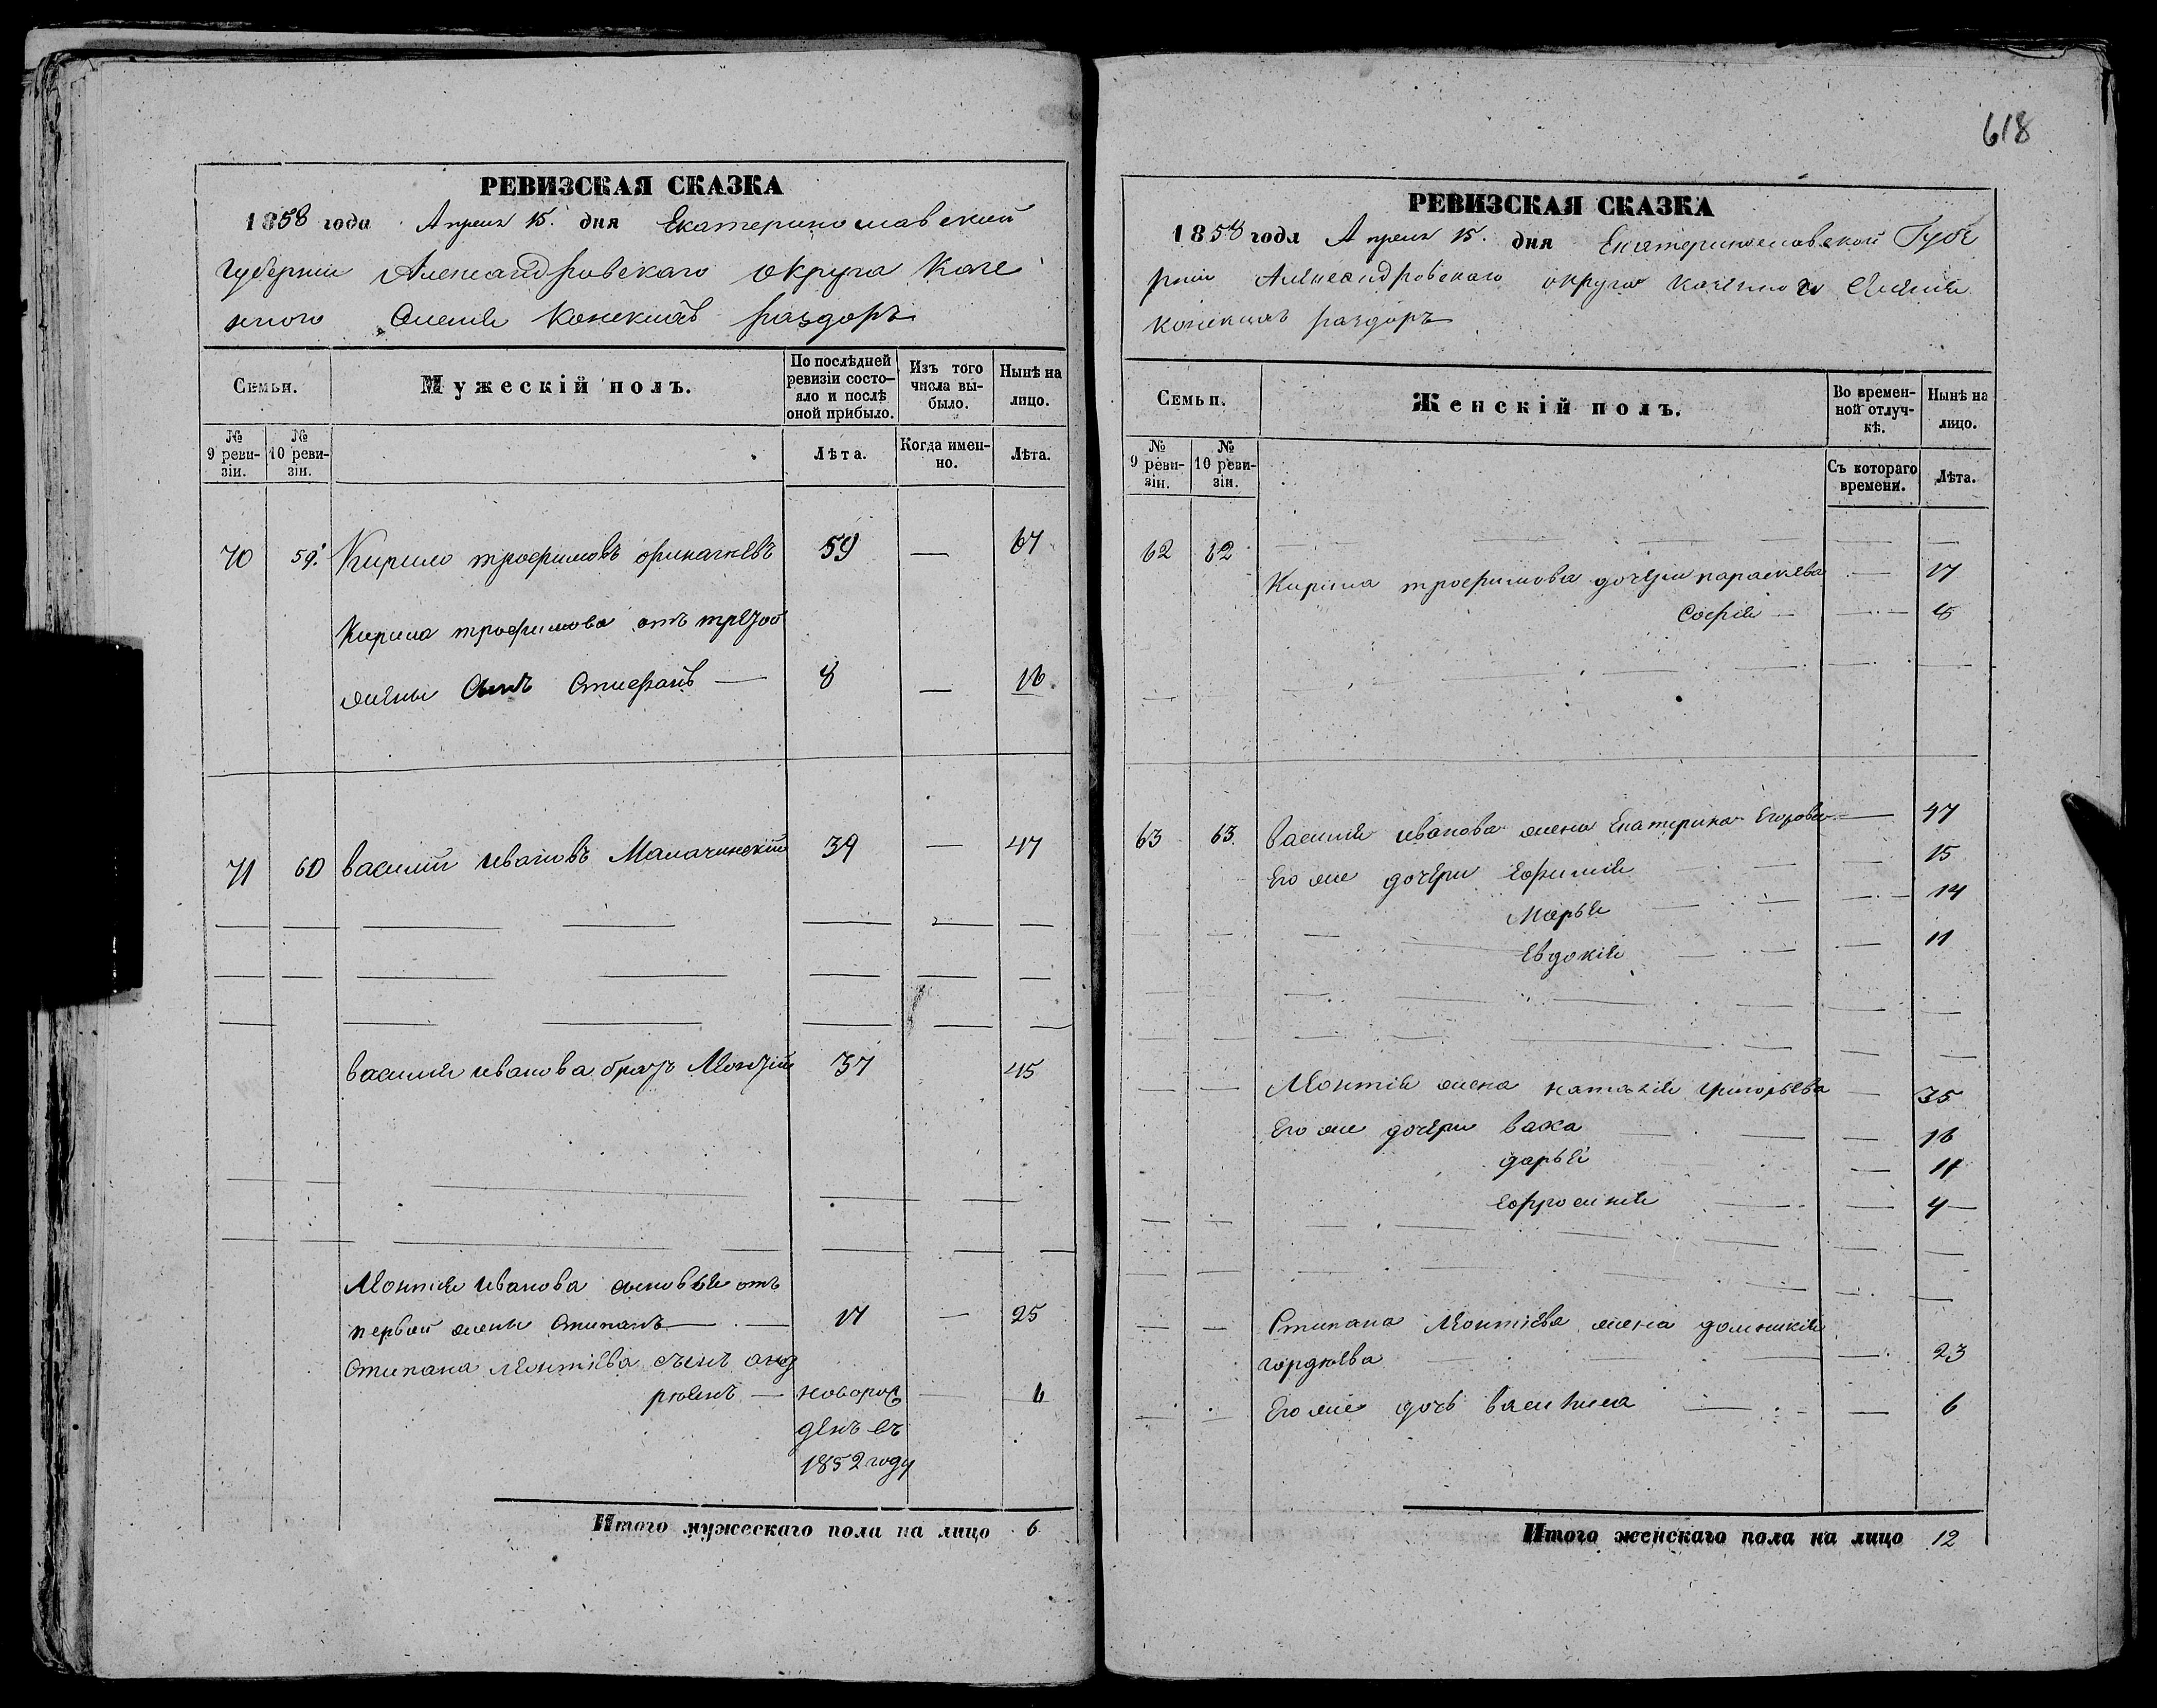 РЕВИЗСКАЯ СКАЗКА
1858 года Апреля 15. дня Екатеринославской
губерніи Александровскаго округа казе
ннаго Селенія Конскихъ раздоръ
Семьи.
Мужескій полъ.
По послѣдней ревизіи состо-
яло и послѣ
оной прибыло.
Изъ того
числа вы-
было.
Нынѣ на
лицо.
№
9 реви-
зіи.
№
10 реви-
зіи.
Лѣта.
Когда имен-
но.
Лѣта.
70 59. Кирило трофимовъ 59 — 67
Кирила трофимова отъ третой
жены Сынъ Стефанъ — 8 — 16
71 60 василий ивановъ 39 — 47
василия иванова братъ Леонтій 37 45
Леонтія иванова сыновья отъ
первой жены Степанъ — 17 — 25
Степана леонтіева сынъ анд
рюянъ — новорож — 6
денъ въ
1852 году
Итого мужескаго пола на лицо 6
618
РЕВИЗСКАЯ СКАЗКА
1858 года Апреля 15. дня Екатеринославской Губе
рніи Александровскаго округа казеннаго Селенія
конскихъ раздоръ
Семьи.
Женскій полъ.
Во времен-
ной отлуч-
кѣ.
Нынѣ на
лицо.
№
9 реви-
зіи.
№
10 реви-
зіи.
Съ котораго
времени.
Лѣта.
62 62
Кирила трофимова дочери параскева — 17
Софія —
63 63. василия иванова жена Екатерина Егорова — 47
Его же дочери Ефимія — 15
Марья — 14
Евдокія — 11
Леонтія жена наталія григорьева — 35
Его же дочери васса — 16
дарья — 11
Ефросинія — 4
Степана Леонтіева жена домникія
гордеева — 23
Его же дочь василиса — 6
Итого женскаго пола на лицо 12